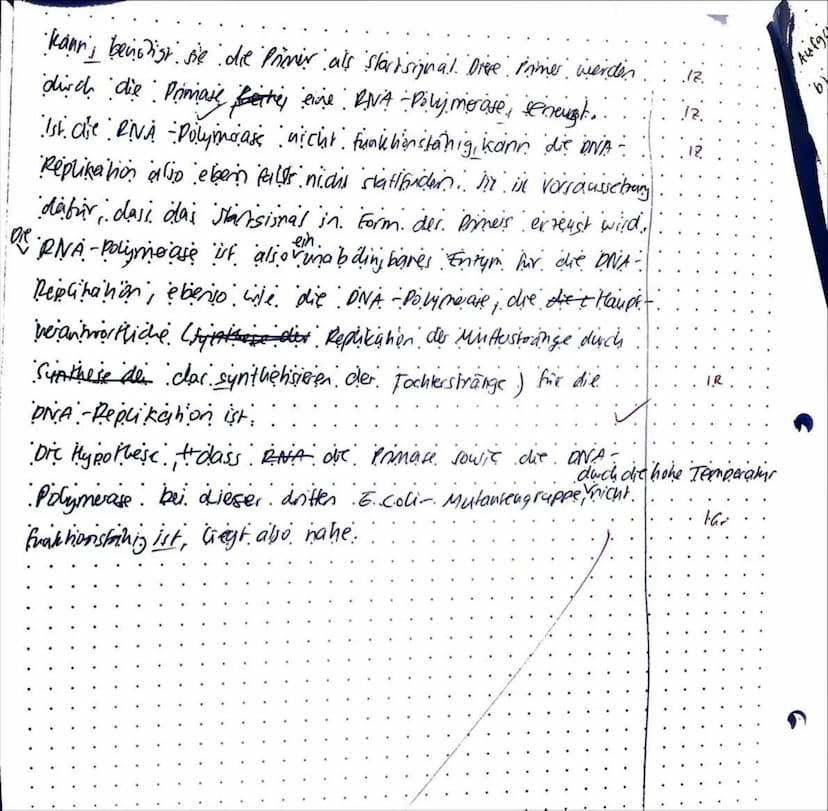 kann, benötigt sie die Primer als Startsignal. Diese Primer werden 1Z.
durch die Primase, eine RNA-Polymerase, erzeugt. 1Z.
Ist die RNA-Polymerase nicht funktionsfähig, kann die DNA- 1Z
Replikation also ebenfalls nicht stattfinden. Es ist Vorraussetzung
dafür, dass das Startsignal in Form der Primers erzeugt wird.
Die RNA-Polymerase ist also ein unabdingbares Enzym für die DNA-
Replikation, ebenso wie die DNA-Polymerase, die Haupt-
verantwortliche (Synthese der Replikation der Mutterstränge durch
Synthese der das synthetisieren der Tochterstränge) für die 1R
DNA-Replikation ist.
Die Hypothese, dass RNA die Primase sowie die DNA-
Polymerase bei dieser dritten E.Coli-Mutantengruppe durch die hohe Temperatur nicht
funktionsfähig ist, liegt also nahe. 1Gr
Aufga
b)